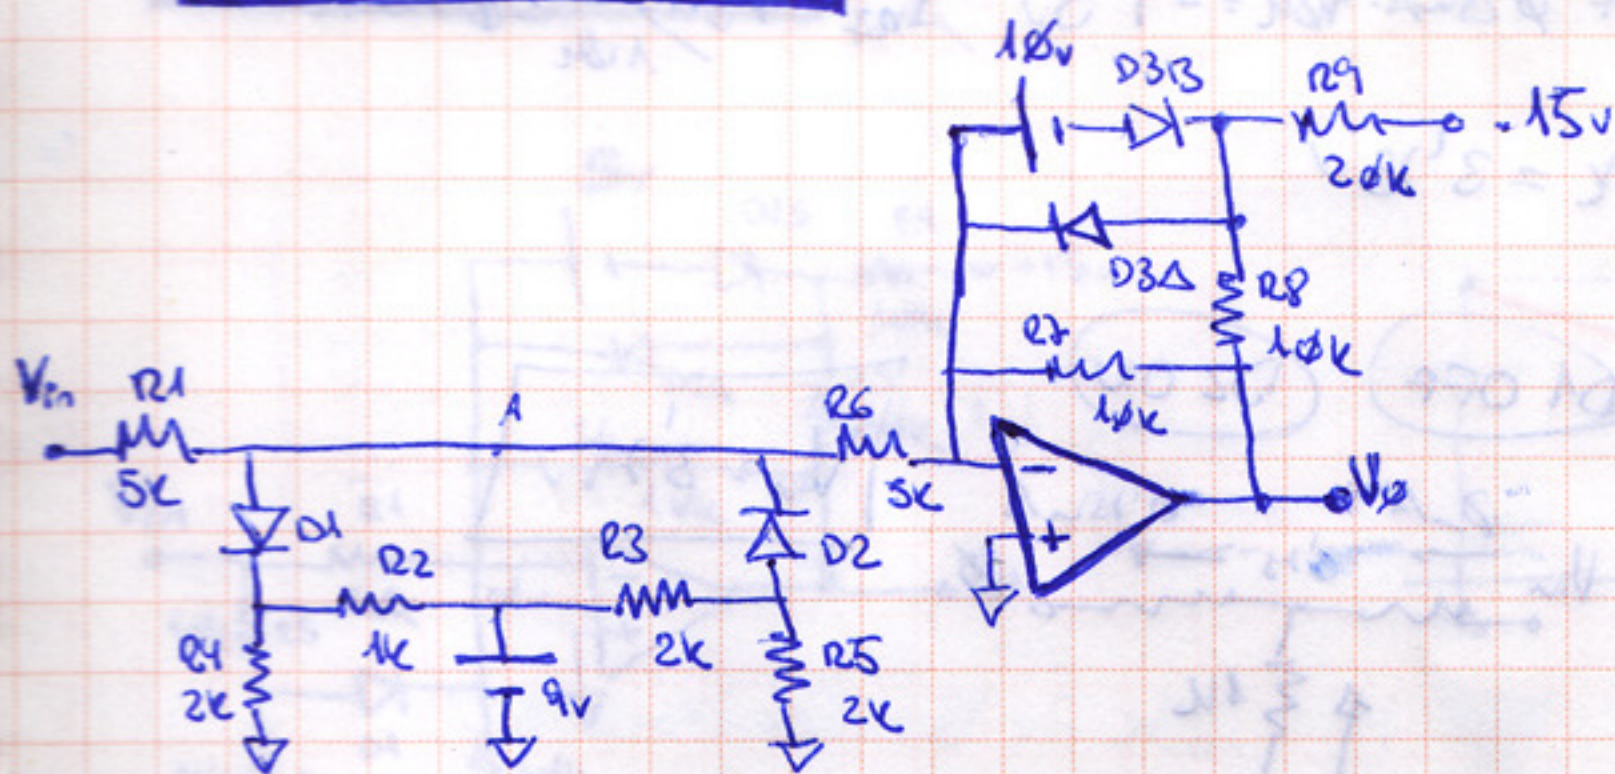 10v
D3B
R9
-15v
20k
D3A
R8
10k
R7
10k
Vin
R1
5k
A
R6
5k
-
+
Vo
D1
R2
1k
R3
2k
D2
R4
2k
9v
R5
2k